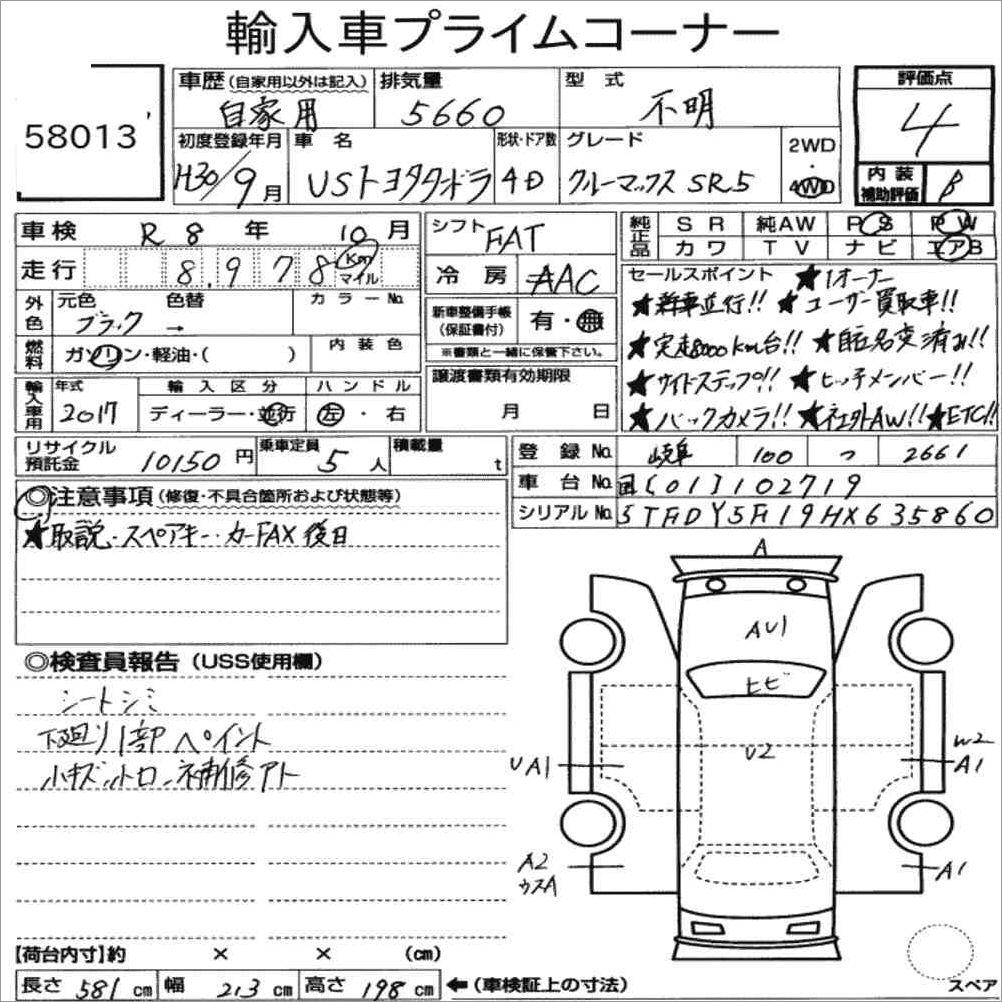 輸入車プライムコーナー
58013
車歴(自家用以外は記入) 自家用
排気量 5660
型式 不明
評価点 4
初度登録年月 H30/9月
車名 USトヨタタンドラ
形状・ドア数 4D
グレード クルーマックス SR5
2WD・4WD
内装補助評価 B
車検 R8年10月
シフト FAT
純正品 SR 純AW PS PW
カワ TV ナビ エアB
走行 8,978 Km マイル
冷房 AAC
セールスポイント ★1オーナー
外色 元色 ブラック 色替 → カラーNo.
新車整備手帳(保証書付) 有・無
※書類と一緒に保管下さい。
★新車並行!! ★ユーザー買取車!!
★実走8000km台!! ★自販名変済み!!
燃料 ガソリン・軽油・( ) 内装色
★サイドステップ!! ★ヒッチメンバー!!
輸入車用 年式 2017 輸入区分 ディーラー・並行 ハンドル 左・右
譲渡書類有効期限 月 日
★バックカメラ!! ★社外AW!! ★ETC!!
リサイクル預託金 10150円
乗車定員 5人
積載量 t
登録No. 岐阜 100 つ 2661
車台No. 国[01]102719
シリアルNo. 5TFDY5F19HX635860
◎注意事項(修復・不具合箇所および状態等)
★取説・スペアキー・カーFAX後日
◎検査員報告(USS使用欄)
シートシミ
下廻り1部ペイント
小キズ 補修アト
A
AU1
ヒビ
U2
UA1
W2
A1
A2
ウスA
A1
【荷台内寸】約 × × (cm)
長さ 581 cm 幅 213 cm 高さ 198 cm ←(車検証上の寸法)
スペア